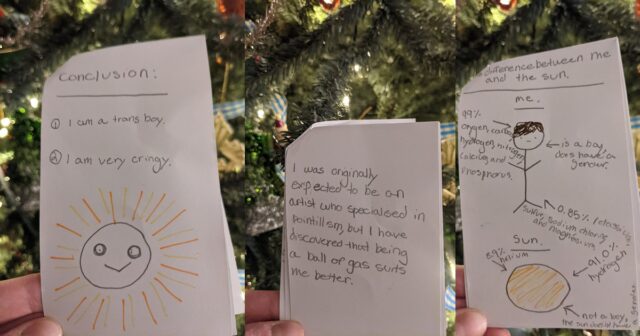 Conclusion:
① I am a trans boy.
② I am very cringy.
I was originally
expected to be an
artist who specialised in
pointillism, but I have
discovered that being
a ball of gas suits
me better.
difference between me
and the sun.
me.
99%
oxygen, carbon,
hydrogen, nitrogen,
calcium, and
Phosphorus.
is a boy,
does have a
gender.
0.85% Potassium,
sulfur, sodium, chlorine,
and magnesium
Sun.
helium
hydrogen
not a boy,
the sun doesn't have